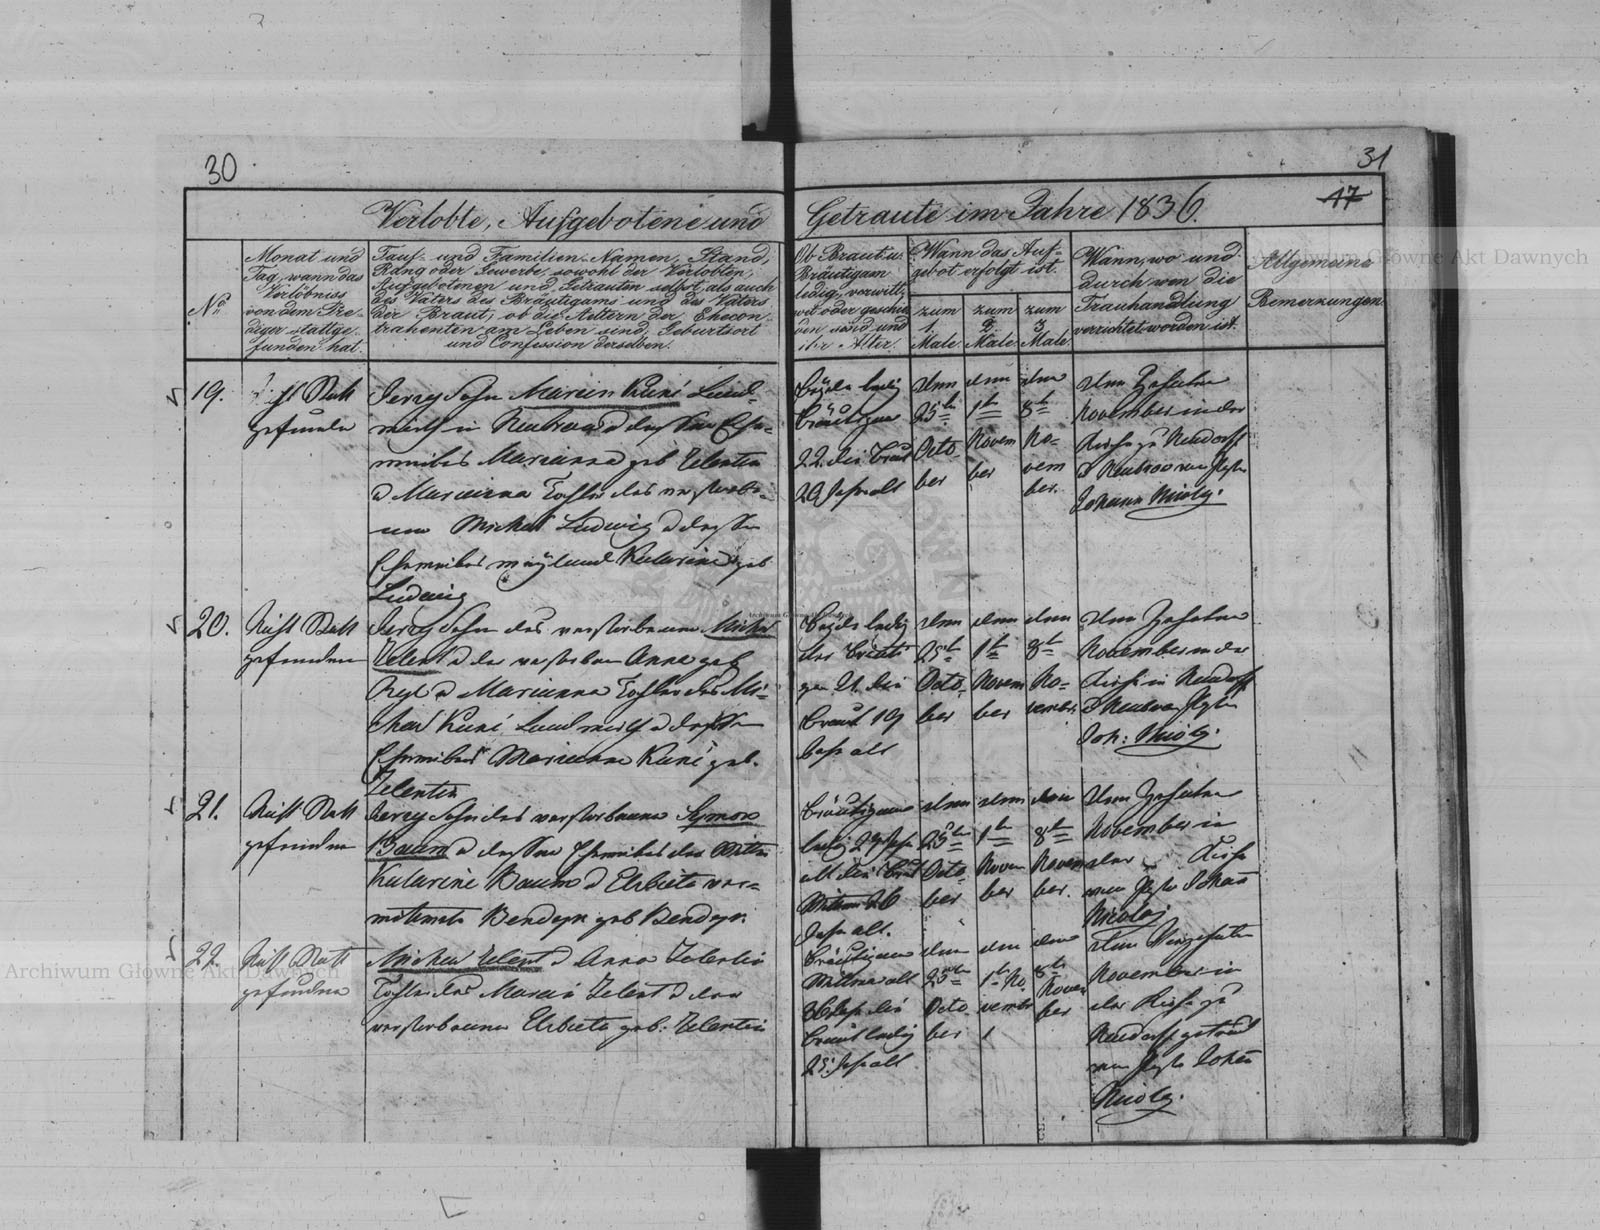 30
31
17
Verlobte, Aufgebotene und
Getraute im Jahre 1836.
No
Monat und
Tag, wann das
Verlöbniss
von dem Pre-
diger stattge-
funden hat.
Tauf- und Familien-Namen, Stand,
Rang oder Gewerbe sowohl der Verlobten,
Aufgebotenen und Getrauten selbst, als auch
des Vaters des Bräutigams und des Vaters
der Braut, ob die Aeltern der Ehecon-
trahenten am Leben sind, Geburtsort
und Confession derselben.
Ob Braut u.
Bräutigam
ledig, verwitt-
wet oder geschie-
den sind und
ihr Alter.
Wann das Auf-
gebot erfolgt ist.
zum
1.
Male.
zum
2.
Male.
zum
3.
Male.
Wann, wo und
durch wen die
Trauhandlung
verrichtet worden ist.
Allgemeine
Bemerkungen.
19.
Nicht Statt
gefunden
Jerzy Sohn Marcin Kuni Land-
wirth in Neubrow d dessen Ehe-
weibes Marianna geb Zelentin
d Marianna Tochter des verstorbe-
nen Michael Ludwig d dessen
Eheweibes Katarina geb
Ludwig
Beyde ledig
Bräutigam
22. die Braut
20 Jahr alt
den
25ten
Octo-
ber
den
1ten
Novem
ber
den
8ten
No-
vem
ber.
den Zehnten
November in der
Kirche zu Neudorff
d Neubrow von
Johann Nicolaj.
20.
Nicht Statt
gefunden
Jerzy Sohn des verstorbenen Michel
Zelent d der verstorben Anna geb
d Marianna Tochter des Mi-
chael Kuni Landwirth d dessen
Eheweibes Marianna Kuni geb.
Zelentin
Beyde ledig
der Bräuti
gam 21. die
Braut 19
Jahr alt
den
25t
Octo-
ber
den
1t
Novem
ber
den
8t
No-
vembr.
den Zehnten
November in der
Kirche in Neudorff
d Neubrow
Joh: Nicolaj.
21.
Nicht Statt
gefunden
Jerzy Sohn des verstorbenen Symon
Baum d dessen Eheweibes der Wittwe
Katarine Baum d Elzbieta ver-
wittwete Bendzyn geb Bendzyn
Bräutigam
ledig Jahr
alt die Braut
Wittwe 26
Jahr alt.
den
25ten
Octo-
ber
den
1ten
Novem
ber
den
8ten
Novem
ber.
den Zehnten
November in
der Kirche
von Johann
Nicolaj
22.
Nicht Statt
gefunden
Michael Zelent d Anna Zelentin
Tochter des Marcin Zelent d der
verstorbenen Elzbieta geb. Zelentin
Bräutigam
Wittwer alt
36 Jahr die
Braut ledig
Jahr alt
den
25ten
Octo-
ber
den
1t No-
vembr
den
8ten
Novem
ber
den Vierzehnten
November in
der Kirche zu
Neudorff getraut
von Johann
Nicolaj.
Archiwum Główne Akt Dawnych
Archiwum Główne Akt Dawnych
Archiwum Główne Akt Dawnych